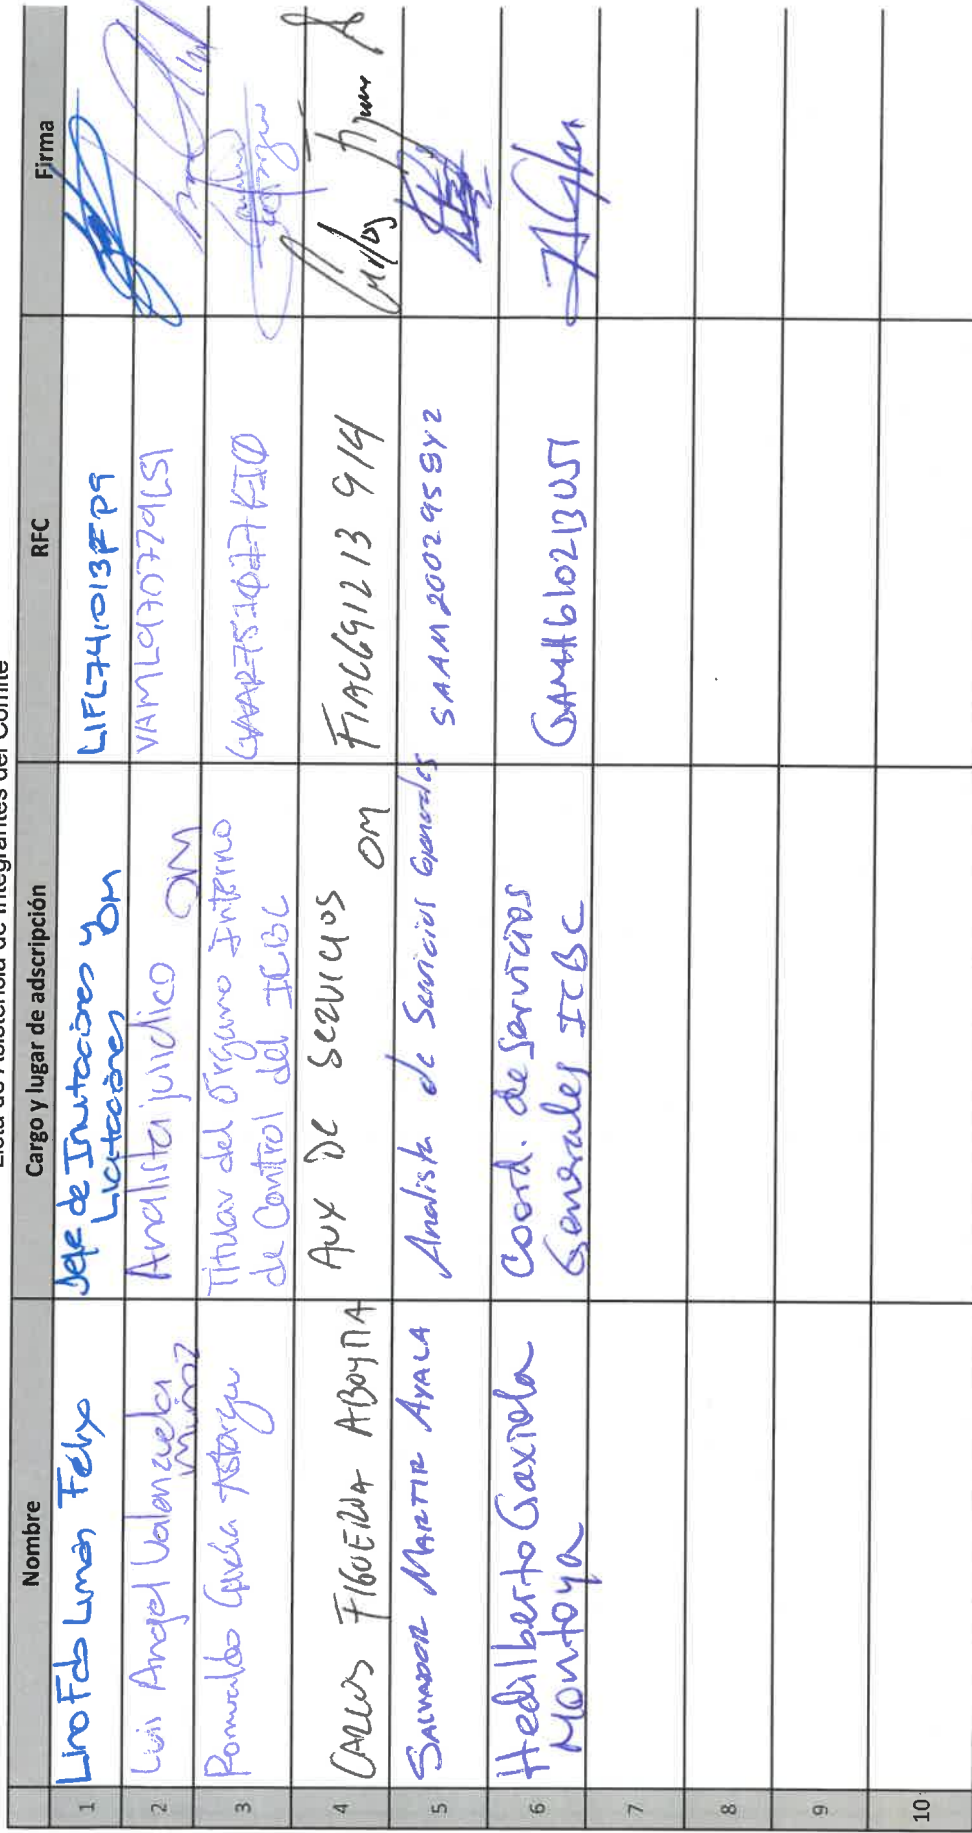 Lista de Asistencia de Integrantes del Comité
Nombre
Cargo y lugar de adscripción
RFC
Firma
1
Lino Fco Liman Felix
Jefe de Invitaciones y
Licitaciones OM
LIFL741013FP9
2
Luis Angel Valenzuela
Muñoz
Analista juridico OM
VAML970729LS1
3
Romualdo
Titular del Organo Interno
de Control del ICBC
4
CARLOS FIGUEROA ABOYTIA
AUX DE SERVICIOS
OM
FIAC691213 914
Carlos
5
SALVADOR MARTIR AYALA
Analista de Servicios Generales
SAAM2002958Y2
6
Hedilberto Gaxiola
Montoya
Coord. de Servicios
Generales ICBC
GAMH610213US1
7
8
9
10